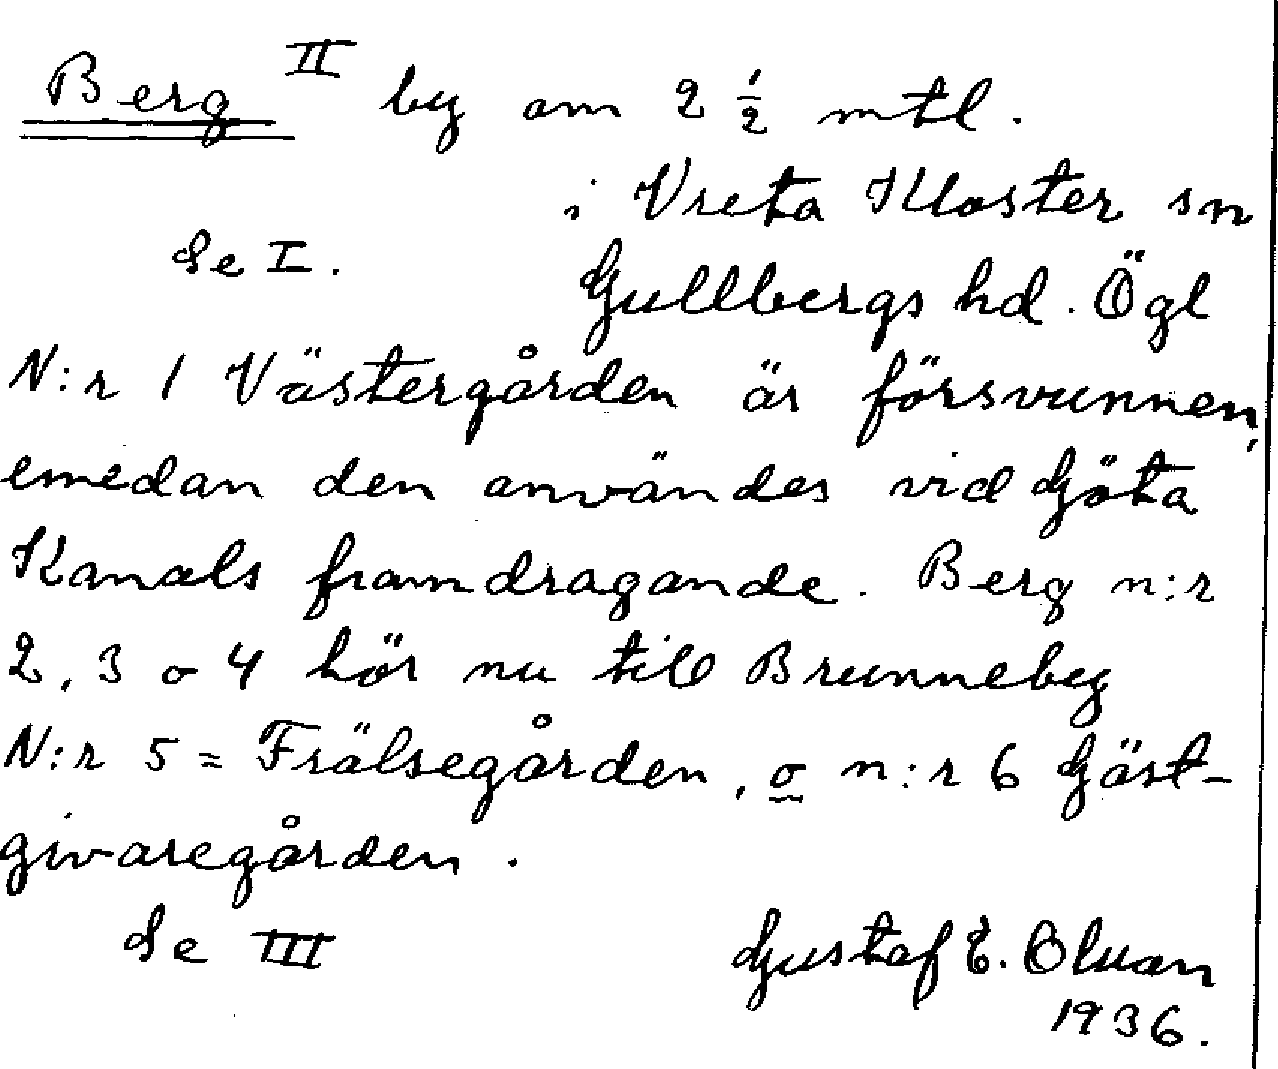 Berg II by om 2 ½ mtl.
i Vreta Kloster sn
Se I.
Gullbergs hd. Ögl
N:r 1 Västergården är försvunnen,
emedan den användes vid Göta
Kanals framdragande. Berg n:r
2, 3 o 4 hör nu till Brunneby
N:r 5 = Frälsegården, o n:r 6 Gäst-
givaregården.
Se III
Gustaf E.
1936.